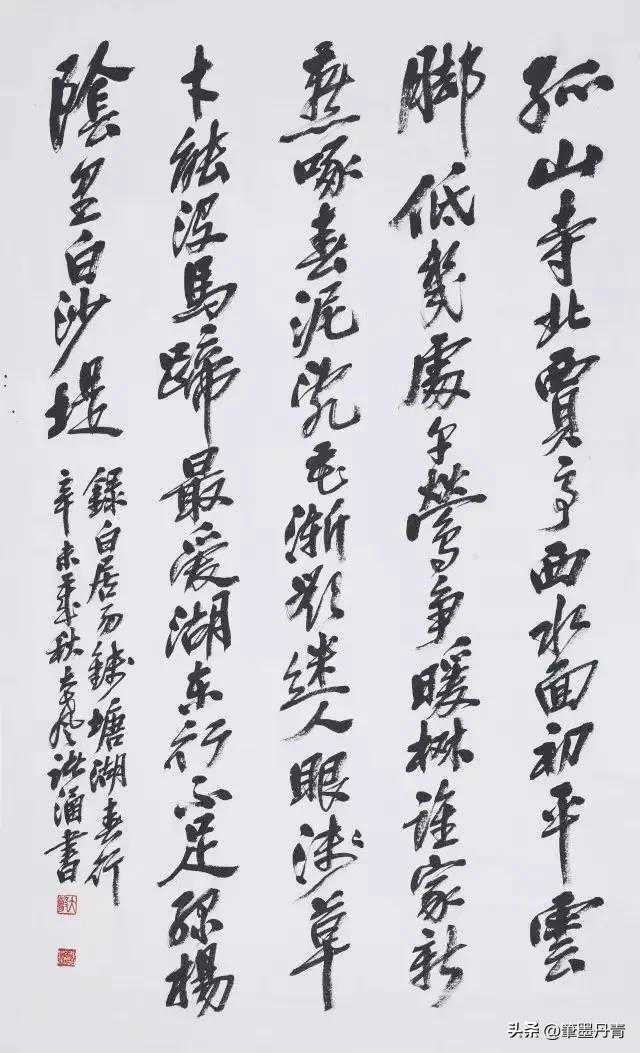 孤山寺北賈亭西水面初平雲
脚低幾處早鶯爭暖樹誰家新
燕啄春泥亂花漸欲迷人眼淺草
才能没馬蹄最爱湖東行不足绿楊
陰里白沙堤
録白居易錢塘湖春行
辛未歲秋涌書
头条 @筆墨丹青